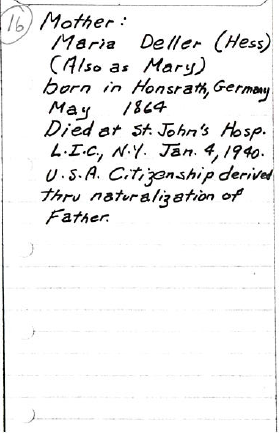 16 Mother:
Maria Deller (Hess)
(Also as Mary)
born in Honsrath, Germany
May 1864
Died at St. John's Hosp.
L.I.C., N.Y. Jan. 4, 1940.
U.S.A. Citizenship derived
thru naturalization of
Father.